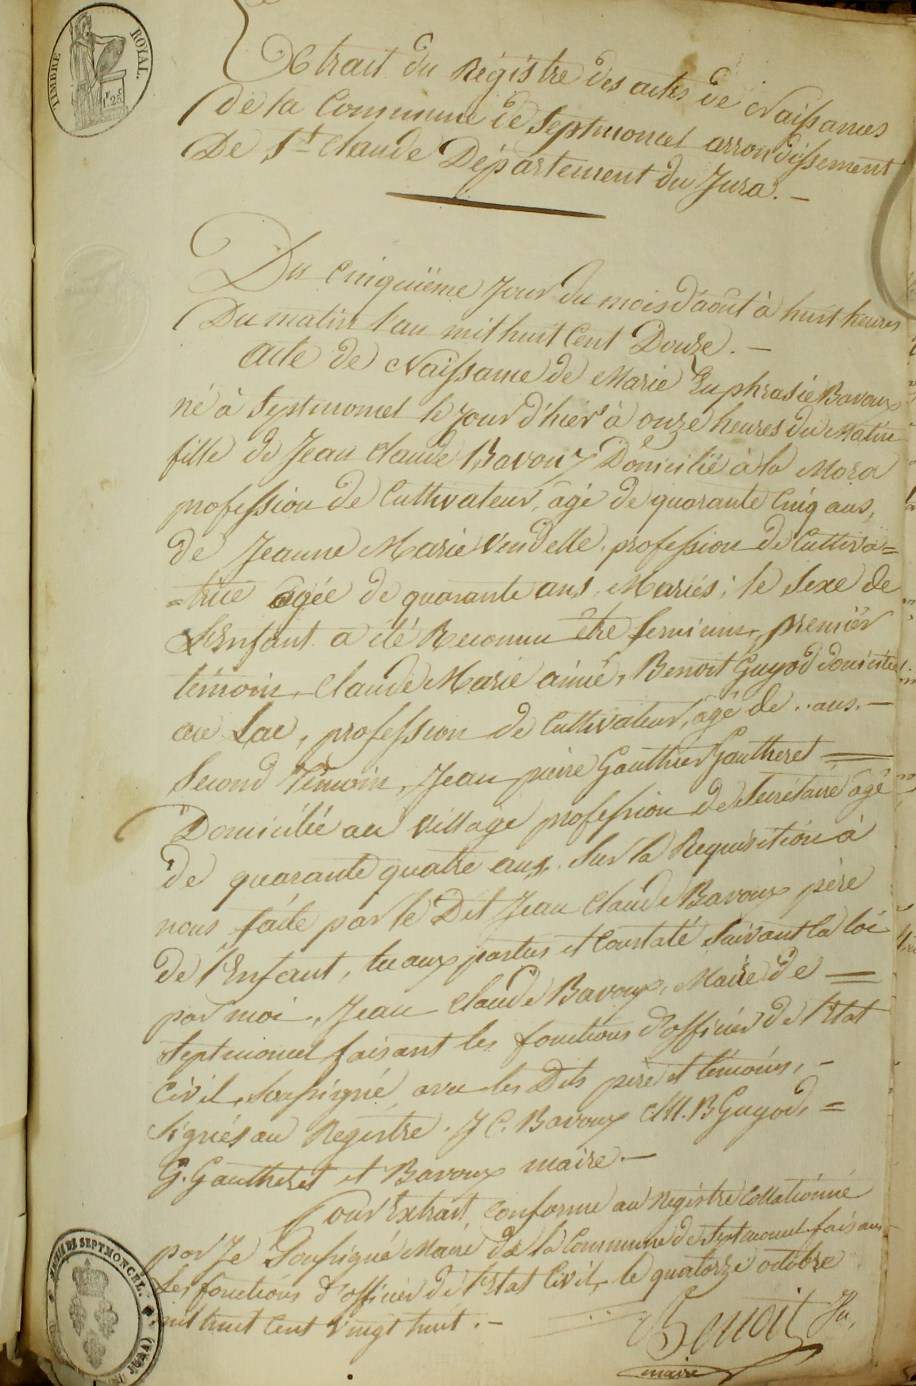 TIMBRE ROYAL.
1f 25c
Extrait du Régistre des actes de Naissances
de la Commune de Septmoncel arrondissement
De St Claude Département du Jura. —
Du cinquiëme Jour du mois d'août à huit heures
Du matin l'an mil huit Cent Douze. —
Acte de Naissance de Marie Euphrasie Bavoux
né à Septmoncel le jour d'hier à onze heures du Matin
fille de Jean Claude Bavoux Domicilié à la Mora
profession de Cultivateur, âgé de quarante Cinq ans,
de Jeanne Marie Vendelle, profession de Cultiva=
=trice agée de quarante ans, Mariés; le Sexe de
L'Enfant a été Reconnu être feminin, premier
témoin, Claude Marie aimé, Benoit Guyod domicilié
au Lac, profession de Cultivateur, âgé de .. ans. —
Second Témoin, Jean pierre Gauthier Gautheret
Domicilié au village profession de Secrétaire âgé
de quarante quatre ans. Sur la Requisition à
nous faite par le Dit Jean Claude Bavoux père
de l'Enfant, lu aux parties et Constaté Suivant la loi
par moi, Jean Claude Bavoux, Maire de
Septmoncel faisant les fonctions d'officier de l'Etat
Civil, Soussigné, avec les Dits père et témoins, —
Signés au Registre. J C. Bavoux C.M. B Guyod, =
G. Gautheret et Bavoux maire. —
Pour Extrait, Conforme au Registre Collationné
par Je Soussigné Maire de la Commune de Septmoncel faisant
Les fonctions d'officier de l'Etat Civil, le quatorze octobre
mil huit Cent Vingt huit. —
Benoit
maire
MAIRIE DE SEPTMONCEL.
(JURA)